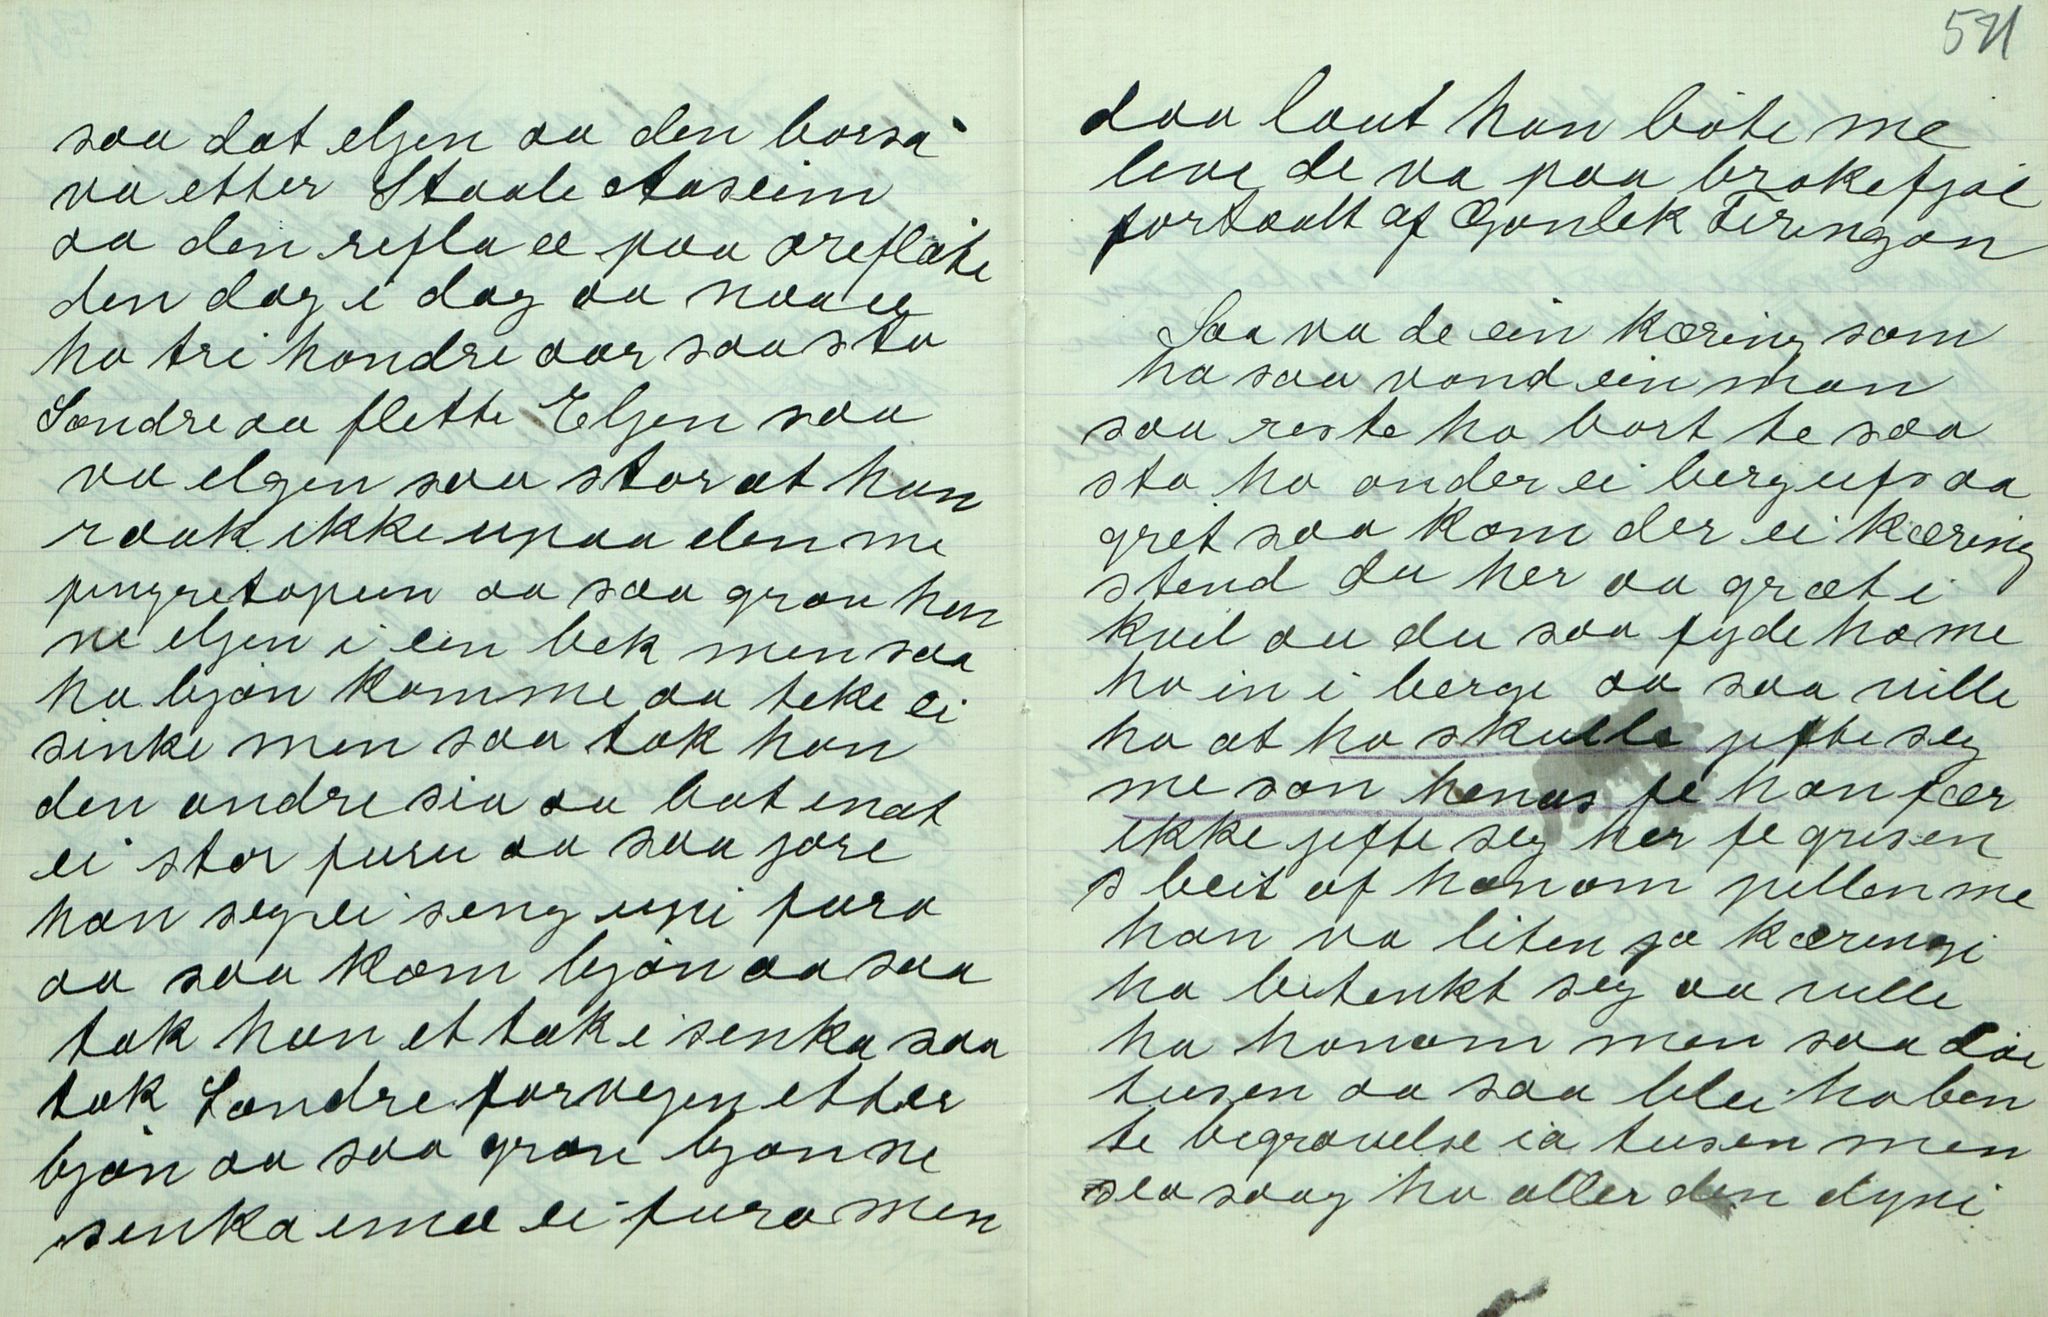 571
saa dat elgen aa den borsa
va etter Staale Aaseim
aa den refla æ paa Øreflaate
den dag i dag aa naa æ
ho tri hondre aar saa sto
Sondre aa flette Elgen saa
va elgen saa stor at han
raak ikke upaa den me
pingretopein aa saa grov han
ne elgen i ein bek men saa
ha bjøn komme aa teke ei
sinke men saa tok han
den andre sia aa bat enat
ei stor furu aa saa jore
han seg ei seng upi fura
aa saa kom bjøn aa saa
tok han et tak i senka saa
tok Sondre forvegen etter
bjøn aa saa grov bjøn ne
senka imæ ei fura men
daa laut han bøte me
live de va paa brokefjøl
fortaalt af Gonlek Tiringan
Saa va de ein kæring som
ha saa vond ein man
saa reste ho bort te saa
sto ho onder ei bergufs aa
gret saa kom der ei kæring
stend du her aa græt i
kveil aa du saa fyde ho me
ho in i berge aa saa ville
ho at ho skulle jifte seg
me son henas fe han fær
ikke jifte seg her fe grisen
sbeit af honom pillen me
han va liten ja kæringi
ha betenkt seg aa ville
ha honom men saa døe
tusen aa saa blei ho ben
te begravelse ia tusen men
sea saag ho aller den dyni